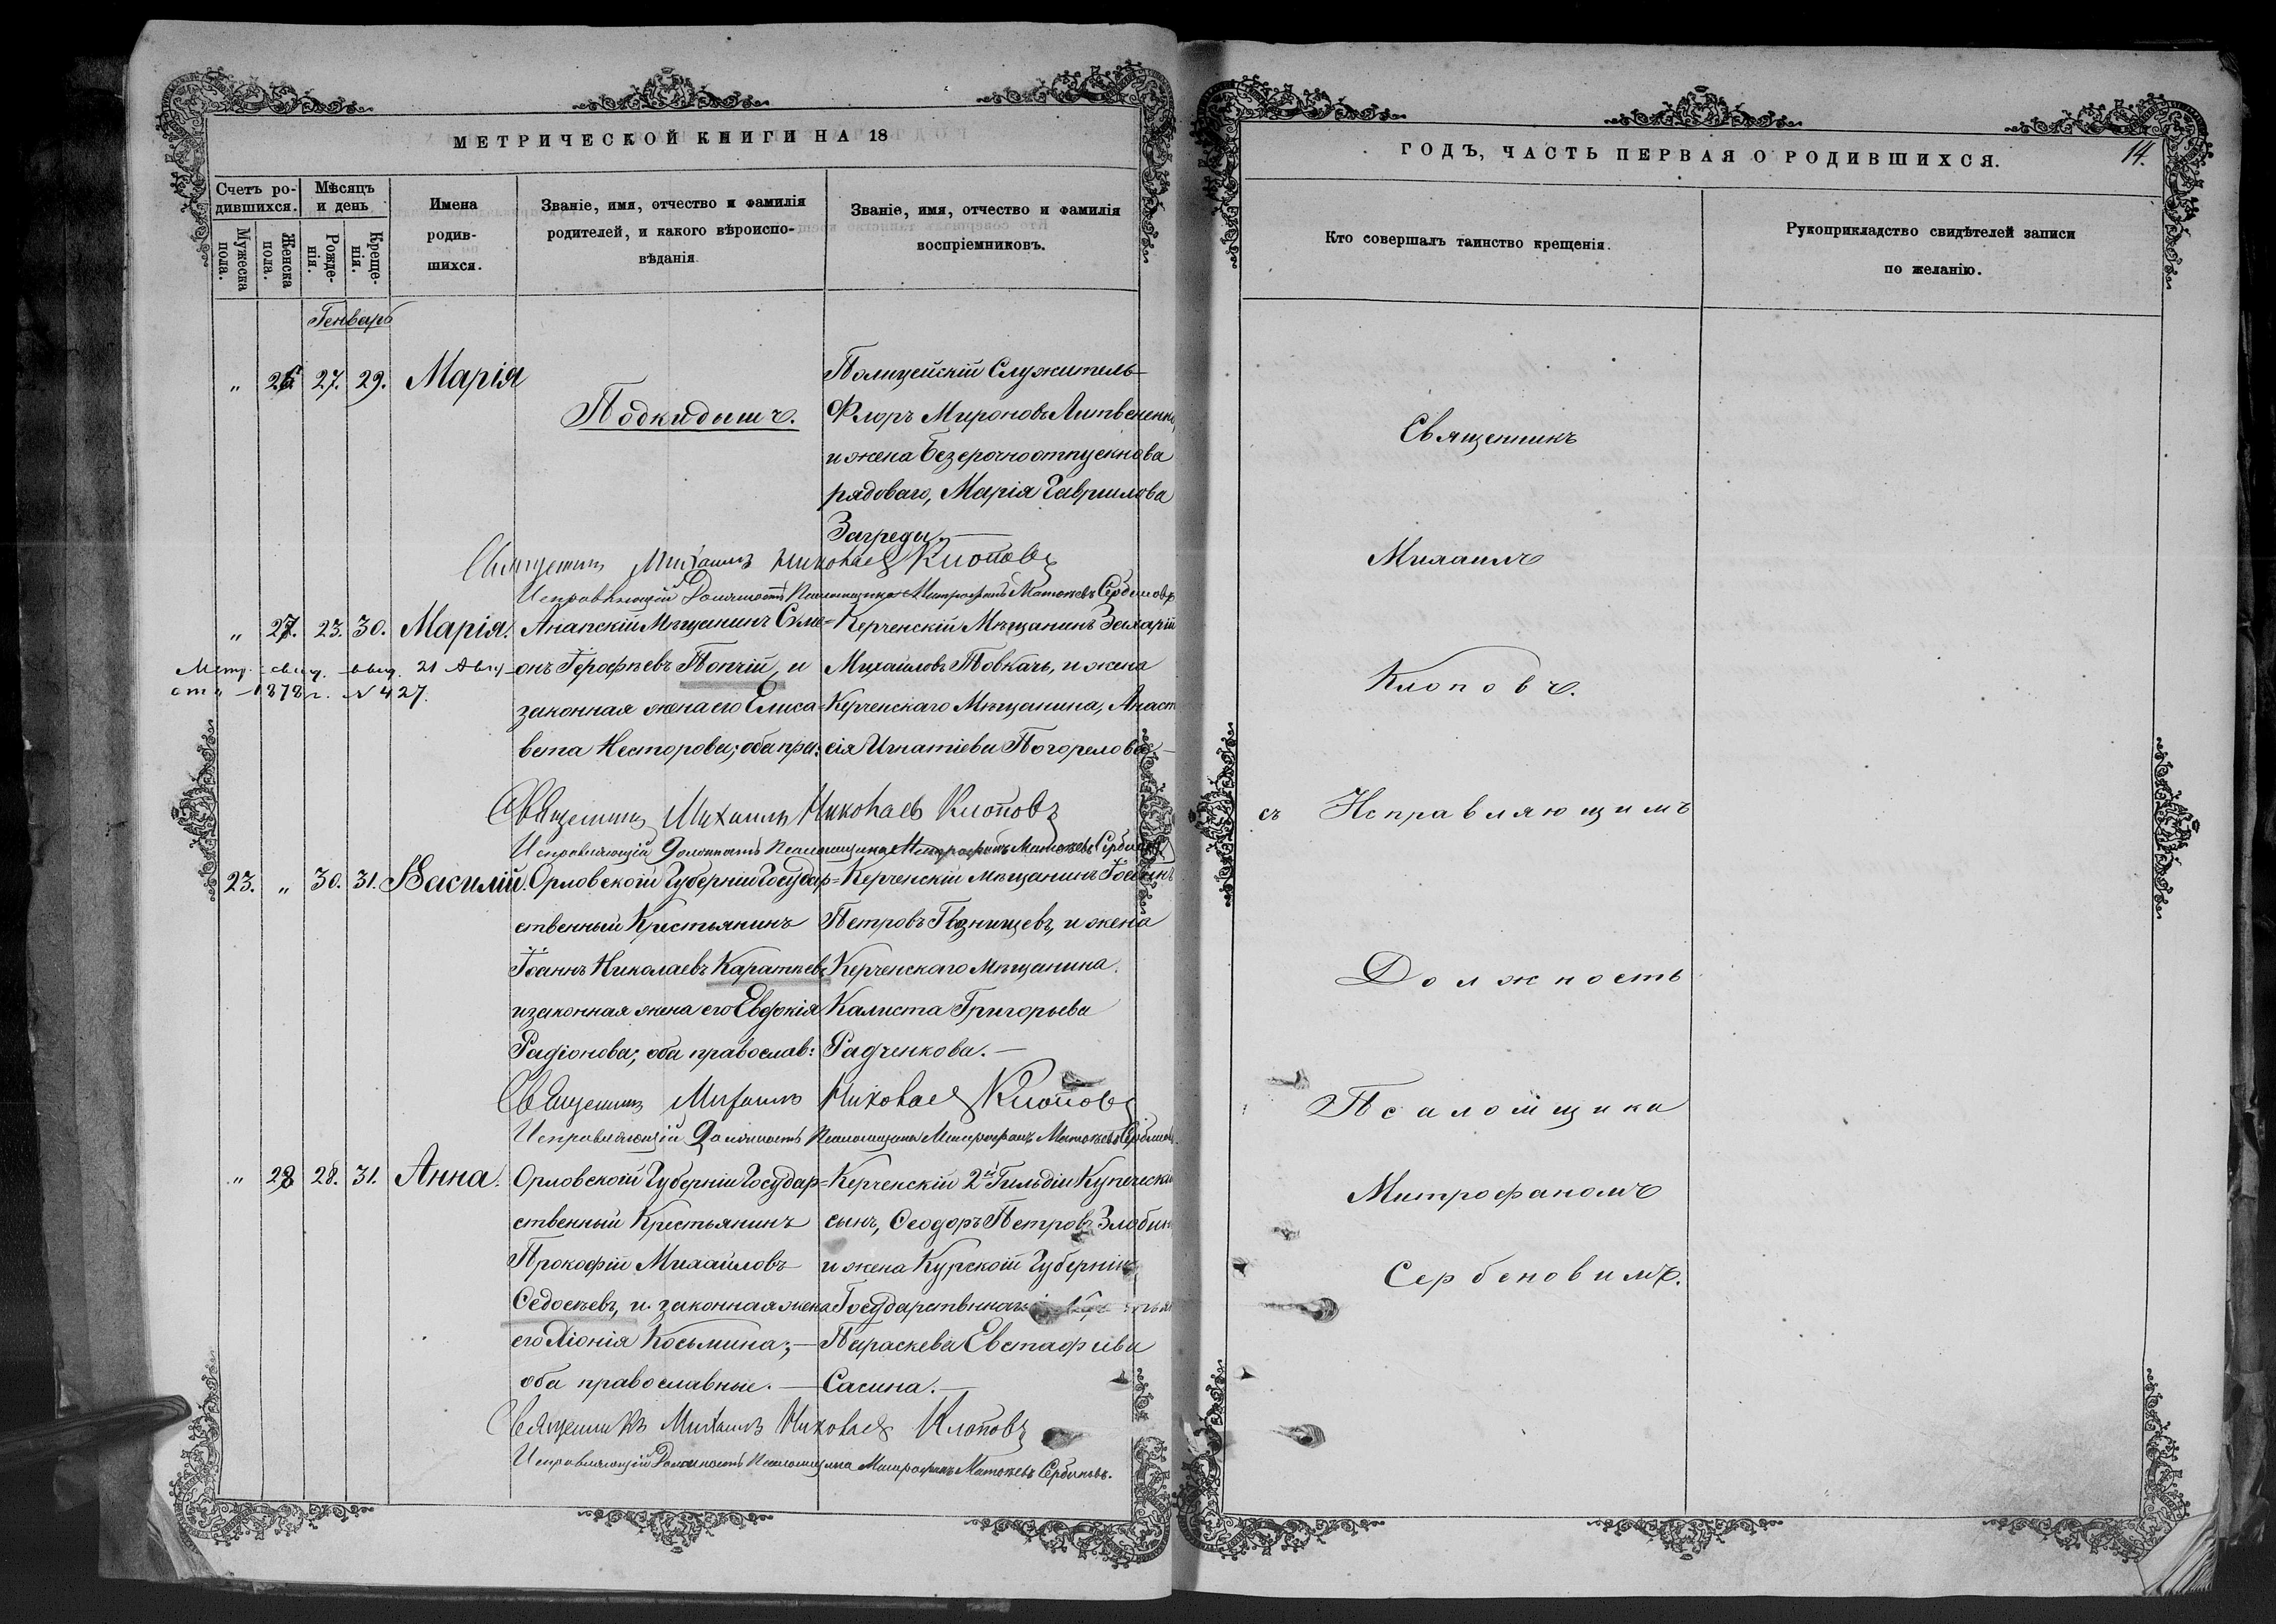 МЕТРИЧЕСКОЙ КНИГИ НА 18
Счетъ ро-
дившихся.
Мѣсяцъ
и день
Мужеска
пола.
Женска
пола.
Рожде-
нія.
Креще-
нія.
Имена
родив-
шихся.
Званіе, имя, отчество и фамилія
родителей, и какого вѣроиспо-
вѣданія
Званіе, имя, отчество и фамилія
воспріемниковъ.
Генварь
„ 26 27. 29. Марія
Подкидышъ.
Полицейскій Служитель
Флоръ Мироновъ Литвененко,
и жена безсрочноотпускнова
рядоваго, Марія Гаврилова
Загреды.—
Священникъ Михаилъ Николаевъ Клоповъ
Исправляющій Должность Псаломщика Митрофанъ Матвѣевъ Сербиновъ
„ 27. 23. 30. Марія.
Анапскій Мѣщанинъ Симе=
онъ Герофѣевъ Попчій, и
законная жена его Елиса=
вета Несторова; оба пра:
Керченскій Мѣщанинъ Захарій
Михайловъ Товкачь, и жена
Керченскаго Мѣщанина, Анаста
сія Игнатіева Погорелова.—
Метр. свид. выд. 21 Авгу
ста 1878 г. № 427.
Священникъ Михаилъ Николаевъ Клоповъ
Исправляющій Должность Псаломщика Митрофанъ Матвѣевъ Сербиновъ
23. „ 30. 31. Василій.
Орловской Губерніи Государ=
ственный Крестьянинъ
Іоаннъ Николаевъ Каратѣевъ
и законная жена его Евдокія
Радіонова; оба православ:
Керченскій мѣщанинъ Іоаннъ
Петровъ Гвзнищевъ, и жена
Керченскаго мѣщанина
Калиста Григорьева
Радченкова.—
Священникъ Михаилъ Николаевъ Клоповъ
Исправляющій Должность Псаломщика Митрофанъ Матвѣевъ Сербиновъ.
„ 28 28. 31. Анна.
Орловской Губерніи Государ=
ственный Крестьянинъ
Прокофій Михайловъ
Ѳедосѣевъ, и законная жена
его Хіонія Косьмина;—
оба православные.—
Керченскій 2й Гильдіи Купеческій
сынъ, Ѳеодоръ Петровъ Злобинъ
и жена Курской Губерніи
Государственнаго
Параскева Евстафіева
Сасина.—
Священникъ Михаилъ Николаевъ Клоповъ
Исправляющій Должность Псаломщика Митрофанъ Матвѣевъ Сербиновъ.
ГОДЪ, ЧАСТЬ ПЕРВАЯ О РОДИВШИХСЯ.
14.
Кто совершалъ таинство крещенія.
Рукоприкладство свидѣтелей записи
по желанію.
Священникъ
Михаилъ
Клоповъ.
съ Исправляющимъ
Должность
Псаломщика
Митрофаномъ
Сербеновимъ.